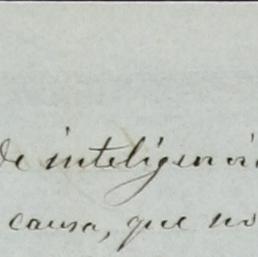 de inteligencia
causa, que no